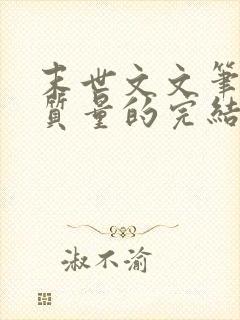 末世文文筆
質量的完結
淑不渝